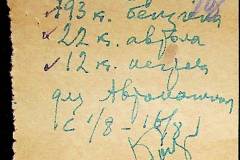 793 к. бензина
22 к. автола
12 к.
для Автомашин
с 1/8 – 16/8